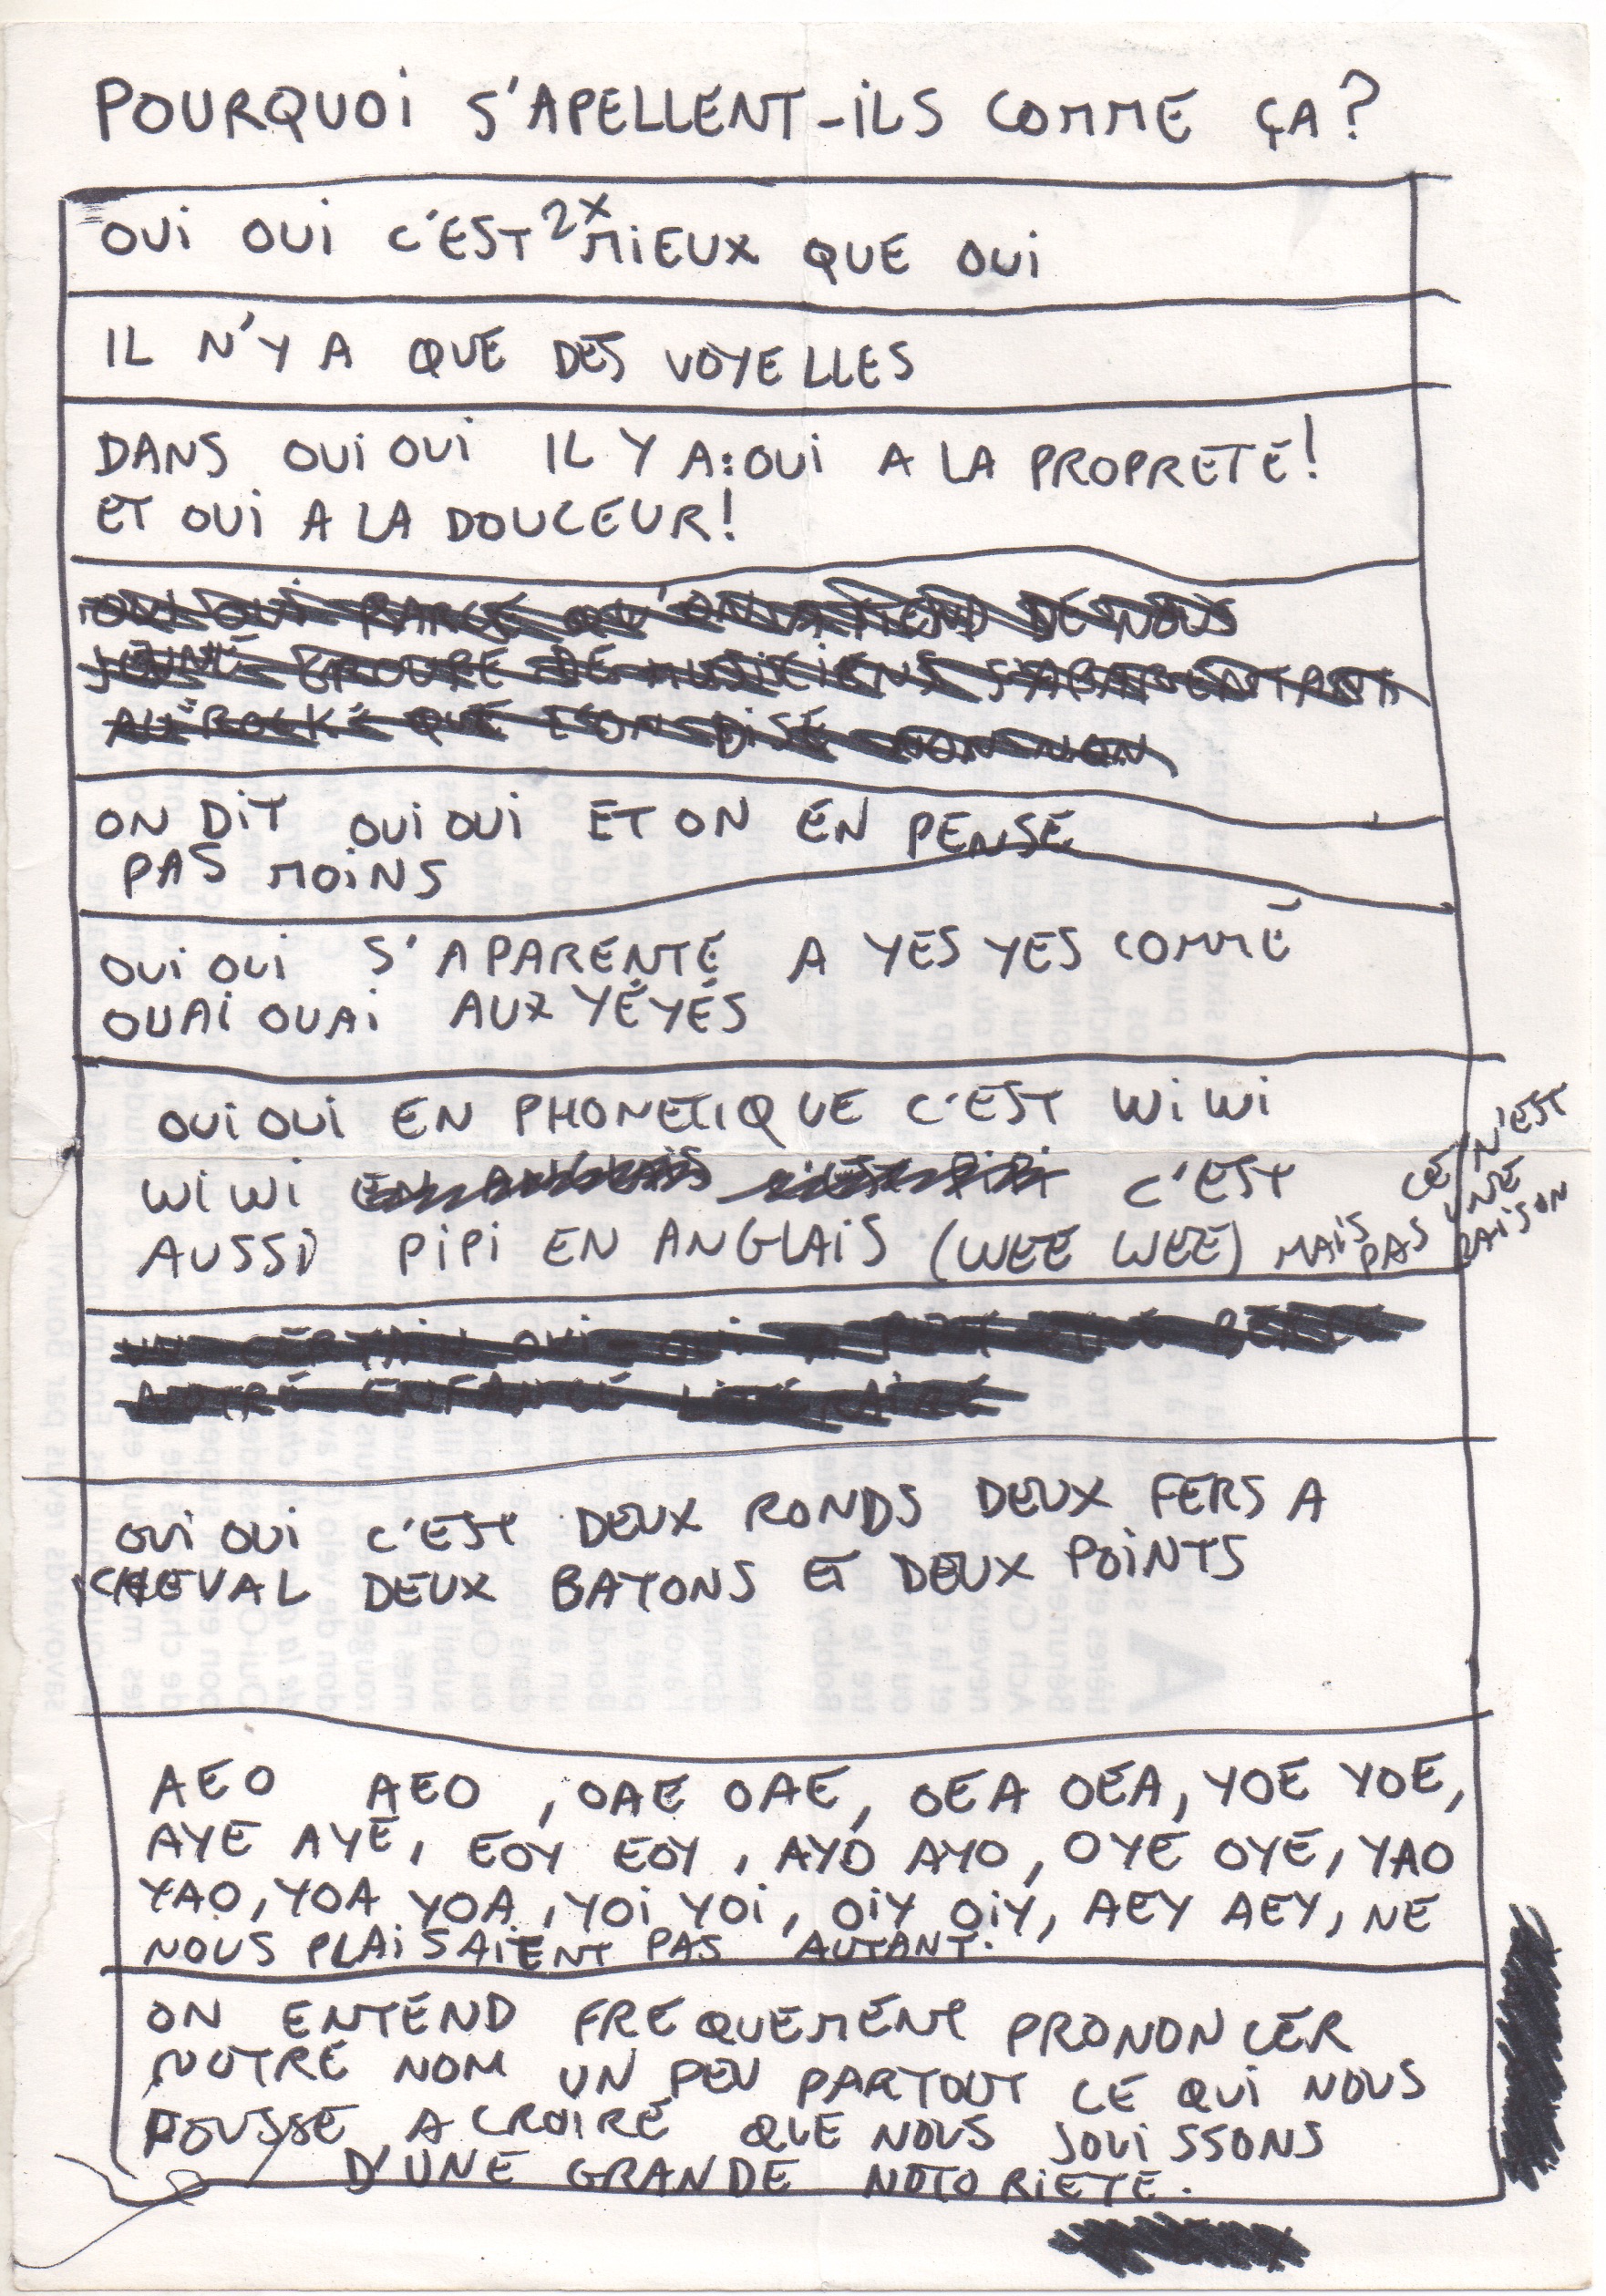 POURQUOI S'APELLENT-ILS COMME ÇA?
OUI OUI C'EST 2X MIEUX QUE OUI
IL N'Y A QUE DES VOYELLES
DANS OUI OUI IL Y A: OUI A LA PROPRETE!
ET OUI A LA DOUCEUR!
OUI OUI PARCE QU'ON ATTEND DE NOUS
JEUNE GROUPE DE MUSICIENS S'APARENTANT
AU ROCK QUE L'ON DISE NON NON
ON DIT OUI OUI ET ON EN PENSE
PAS MOINS
OUI OUI S'APARENTE A YES YES COMME
OUAI OUAI AUX YÉYÉS
OUI OUI EN PHONETIQUE C'EST WI WI
WI WI EN ANGLAIS C'EST PIPI C'EST
AUSSI PIPI EN ANGLAIS (WEE WEE) MAIS
CE N'EST
PAS UNE
RAISON
UN CERTAIN OUI-OUI A
NOTRE ENFANCE LITERAIRE
OUI OUI C'EST DEUX RONDS DEUX FERS A
CHEVAL DEUX BATONS ET DEUX POINTS
AEO AEO, OAE OAE, OEA OEA, YOE YOE,
AYE AYE, EOY EOY, AYO AYO, OYE OYE, YAO
YAO, YOA YOA, YOI YOI, OIY OIY, AEY AEY, NE
NOUS PLAISAIENT PAS AUTANT.
ON ENTEND FREQUEMENT PRONONCER
NOTRE NOM UN PEU PARTOUT CE QUI NOUS
POUSSE A CROIRE QUE NOUS JOUISSONS
D'UNE GRANDE NOTORIETE.